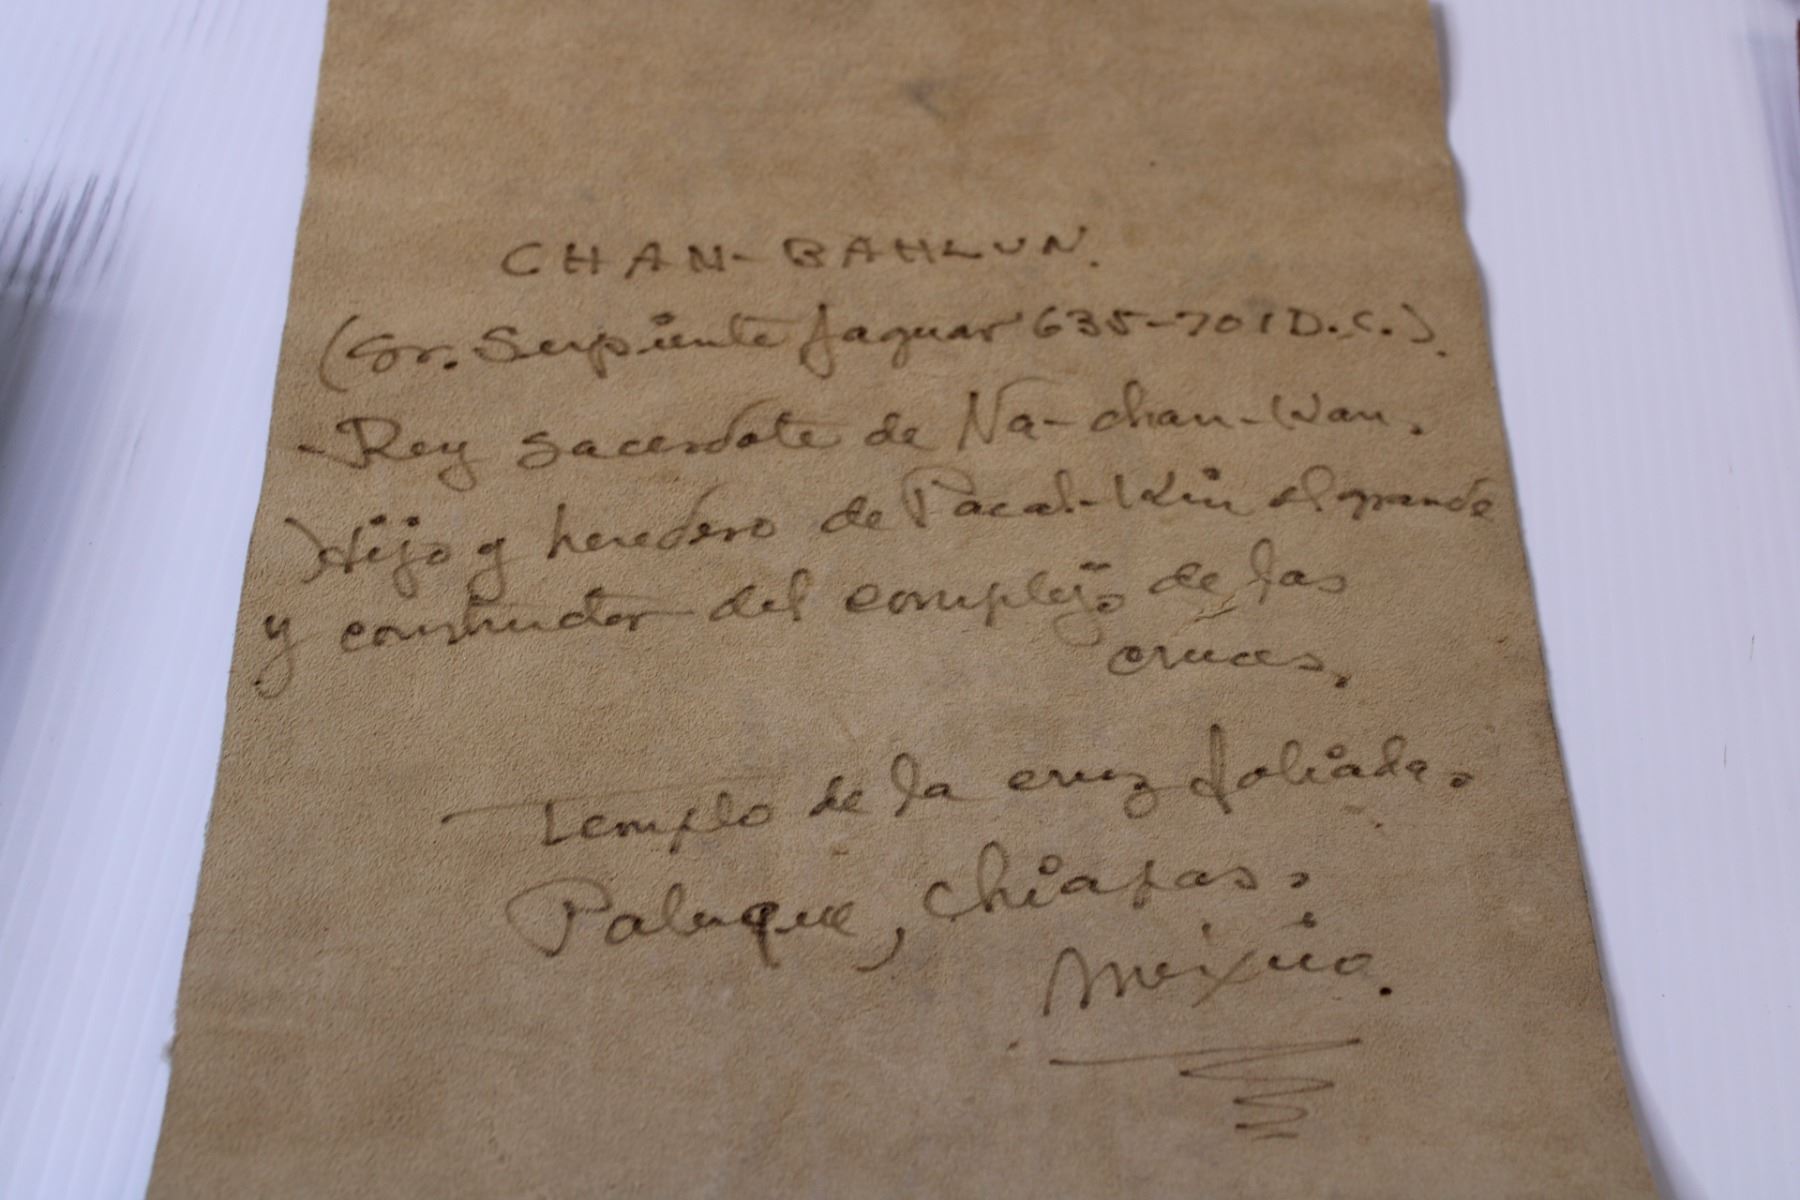 CHAN-BAHLUN.
(Sr. Serpiente Jaguar 635-701 D.C.).
-Rey sacerdote de Na-chan-Kan.
Hijo y heredero de Pacal-Kin el grande
y constructor del complejo de las
cruces.
Templo de la cruz foliada.
Palenque, Chiapas.
México.